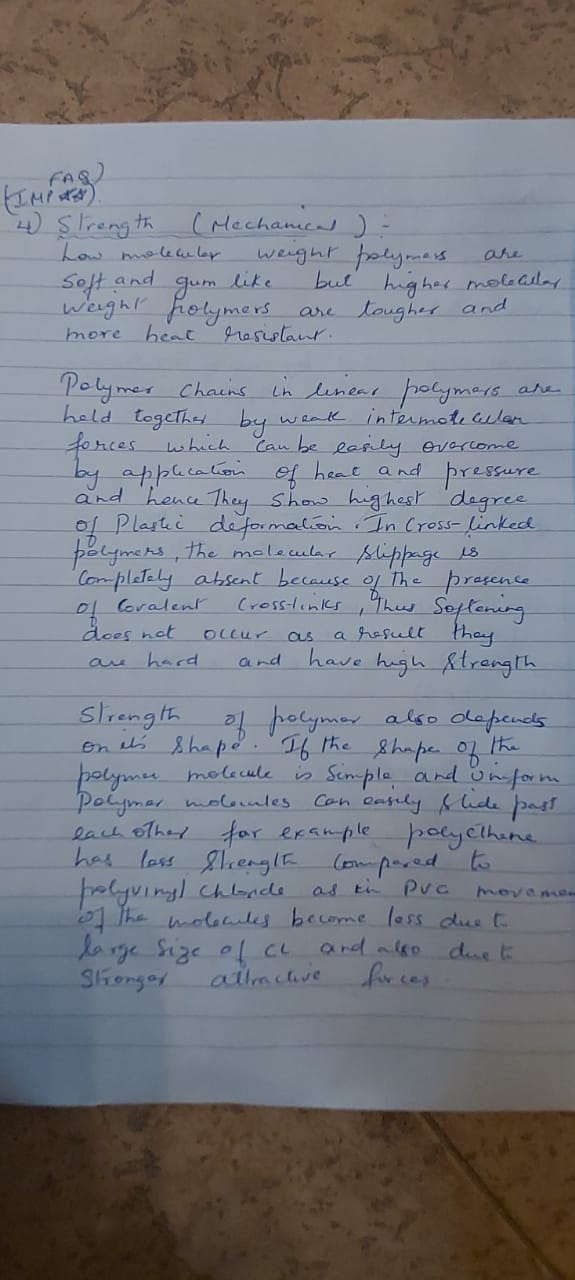 FAQ)
(IMP **).
4) Strength (Mechanical) :-
Low molecular weight polymers are
Soft and gum like but higher molecular
weight polymers are tougher and
more heat resistant.
Polymer Chains in linear polymers are
held together by weak intermolecular
forces which can be easily overcome
by application of heat and pressure
and hence They Show highest degree
of Plastic deformation. In Cross-linked
polymers, the molecular slippage is
Completely absent because of The presence
of Covalent Cross-links, Thus Softening
does not occur as a result they
are hard and have high Strength
Strength of polymer also depends
on its Shape. If the Shape of the
polymer molecule is Simple and Uniform
Polymer molecules can easily Slide past
each other for example polyethene
has less Strength Compared to
polyvinyl chloride as in PVC movemen
of The molecules become less due to
large Size of CL and also due to
Stronger attractive forces.